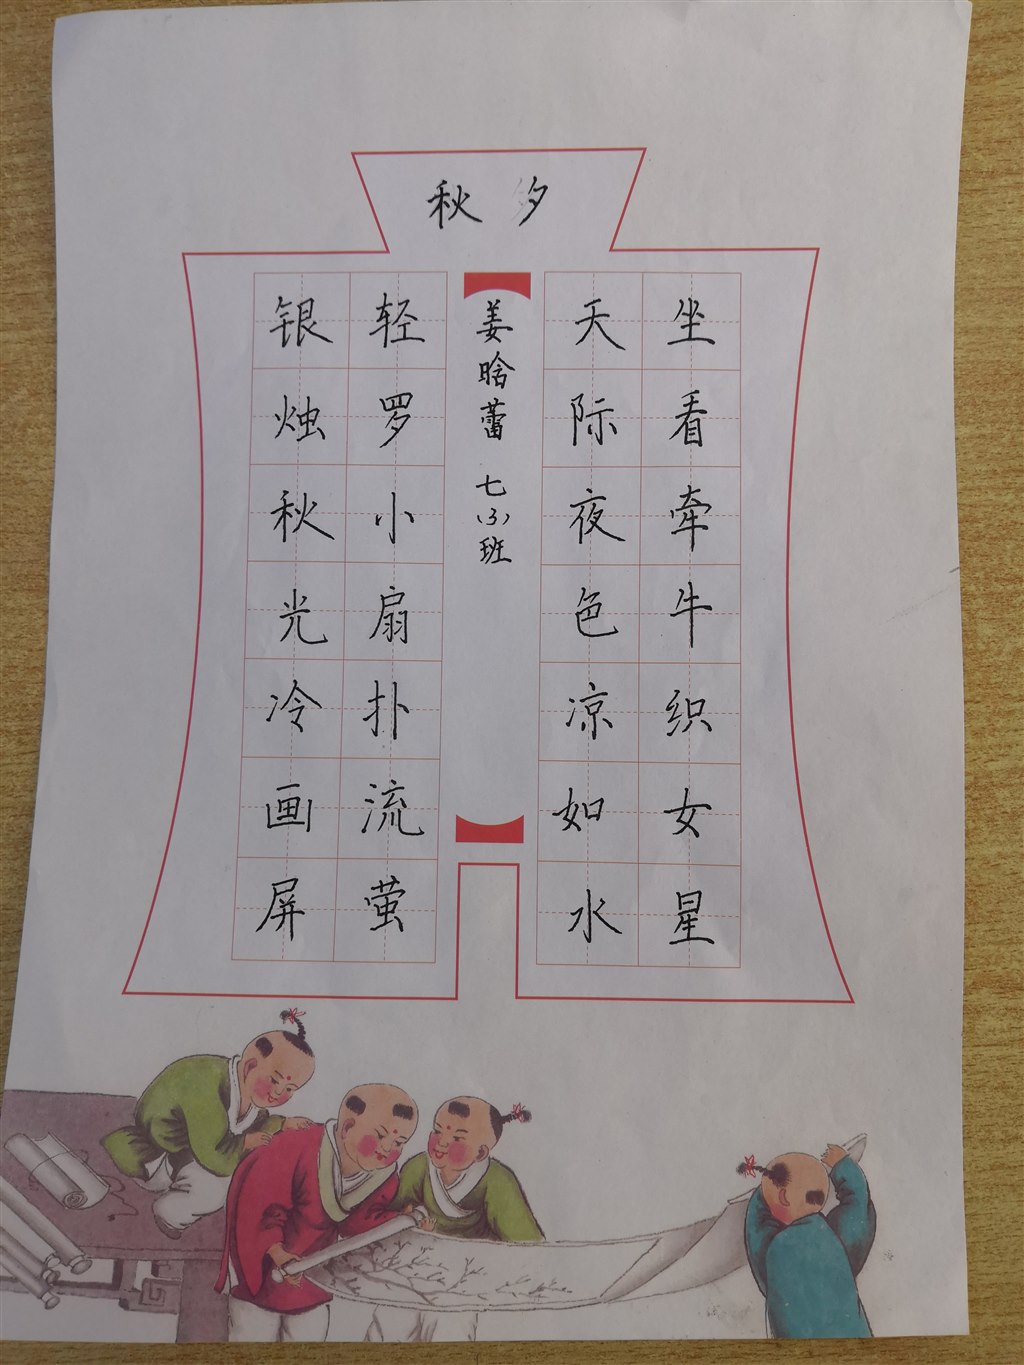 秋夕
银烛秋光冷画屏
轻罗小扇扑流萤
姜晗蕾 七(3)班
天际夜色凉如水
坐看牵牛织女星